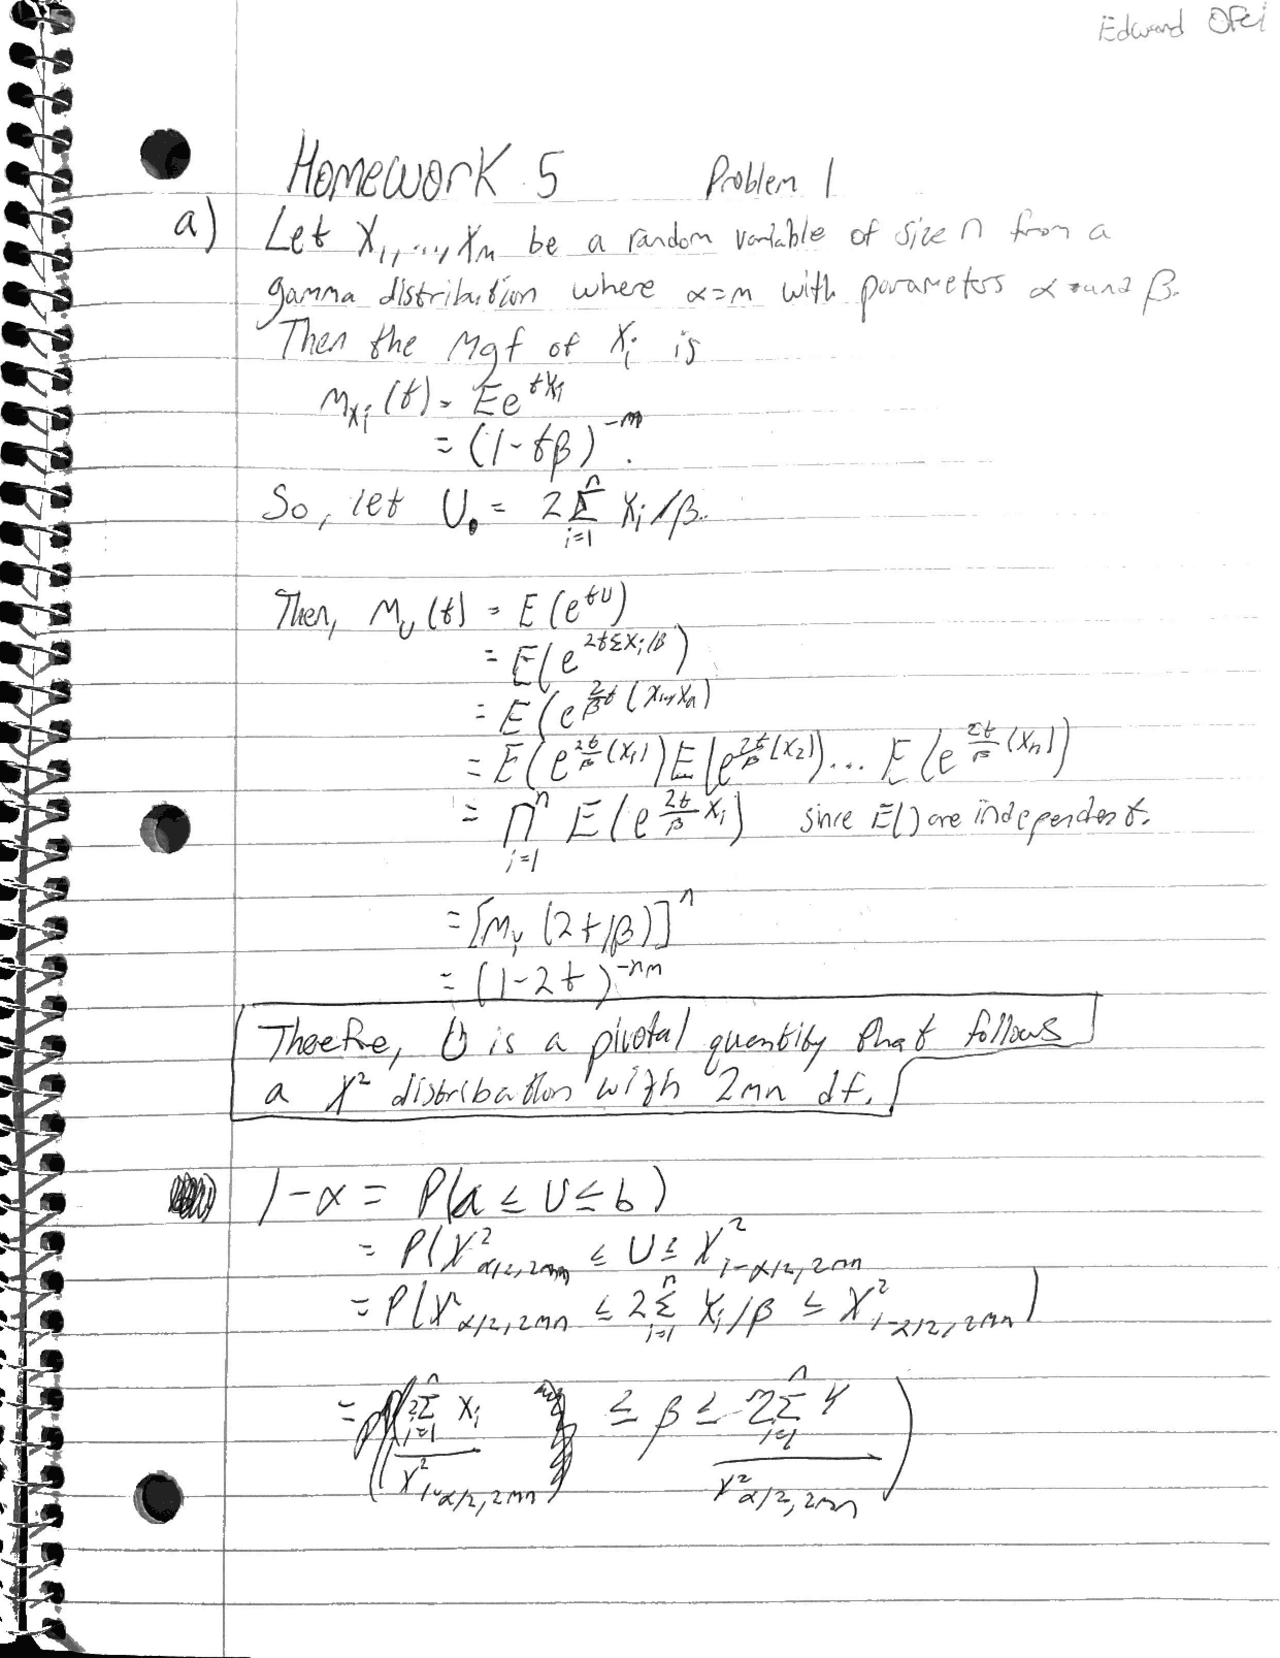 Edward Ofei
Homework 5 Problem 1
a) Let X₁, ..., Xₙ be a random variable of size n from a
gamma distribution where α=m with parameters α and β.
Then the Mgf of Xᵢ is
m_{Xᵢ}(t) = Ee^{tXᵢ}
= (1-tβ)^{-m}.
So, let U = 2 Σ_{i=1}^{n} Xᵢ/β.
Then, M_U(t) = E(e^{tU})
= E(e^{2tΣXᵢ/β})
= E(e^{\frac{2}{β}t(X₁...Xₙ)}
= E(e^{\frac{2t}{β}(X₁)})E(e^{\frac{2t}{β}(X₂)})... E(e^{\frac{2t}{β}(Xₙ)})
= Π_{i=1}^{n} E(e^{\frac{2t}{β}Xᵢ}) since E() are independent.
= [M (2t/β)]^n
= (1-2t)^{-nm}
Theefre, U is a pivotal quantity that follows
a χ² distribution with 2mn df.
1-α = P(a ≤ U ≤ b)
= P(χ²_{α/2, 2mn} ≤ U ≤ χ²_{1-α/2, 2mn}
= P(χ²_{α/2, 2mn} ≤ 2 Σ_{i=1}^{n} Xᵢ/β ≤ χ²_{1-α/2, 2mn})
= P(\frac{2 Σ_{i=1}^{n} Xᵢ}{χ²_{1-α/2, 2mn}} ≤ β ≤ \frac{2 Σ_{i=1}^{n} Y}{χ²_{α/2, 2mn}})